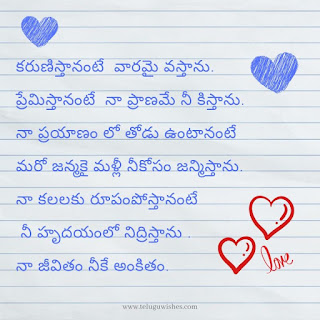 కరుణిస్తానంటే వారమై వస్తాను.
ప్రేమిస్తానంటే నా ప్రాణమే నీ కిస్తాను.
నా ప్రయాణం లో తోడు ఉంటానంటే
మరో జన్మకై మళ్లీ నీకోసం జన్మిస్తాను.
నా కలలకు రూపంపోస్తానంటే
నీ హృదయంలో నిద్రిస్తాను .
నా జీవితం నీకే అంకితం.
love
www.teluguwishes.com